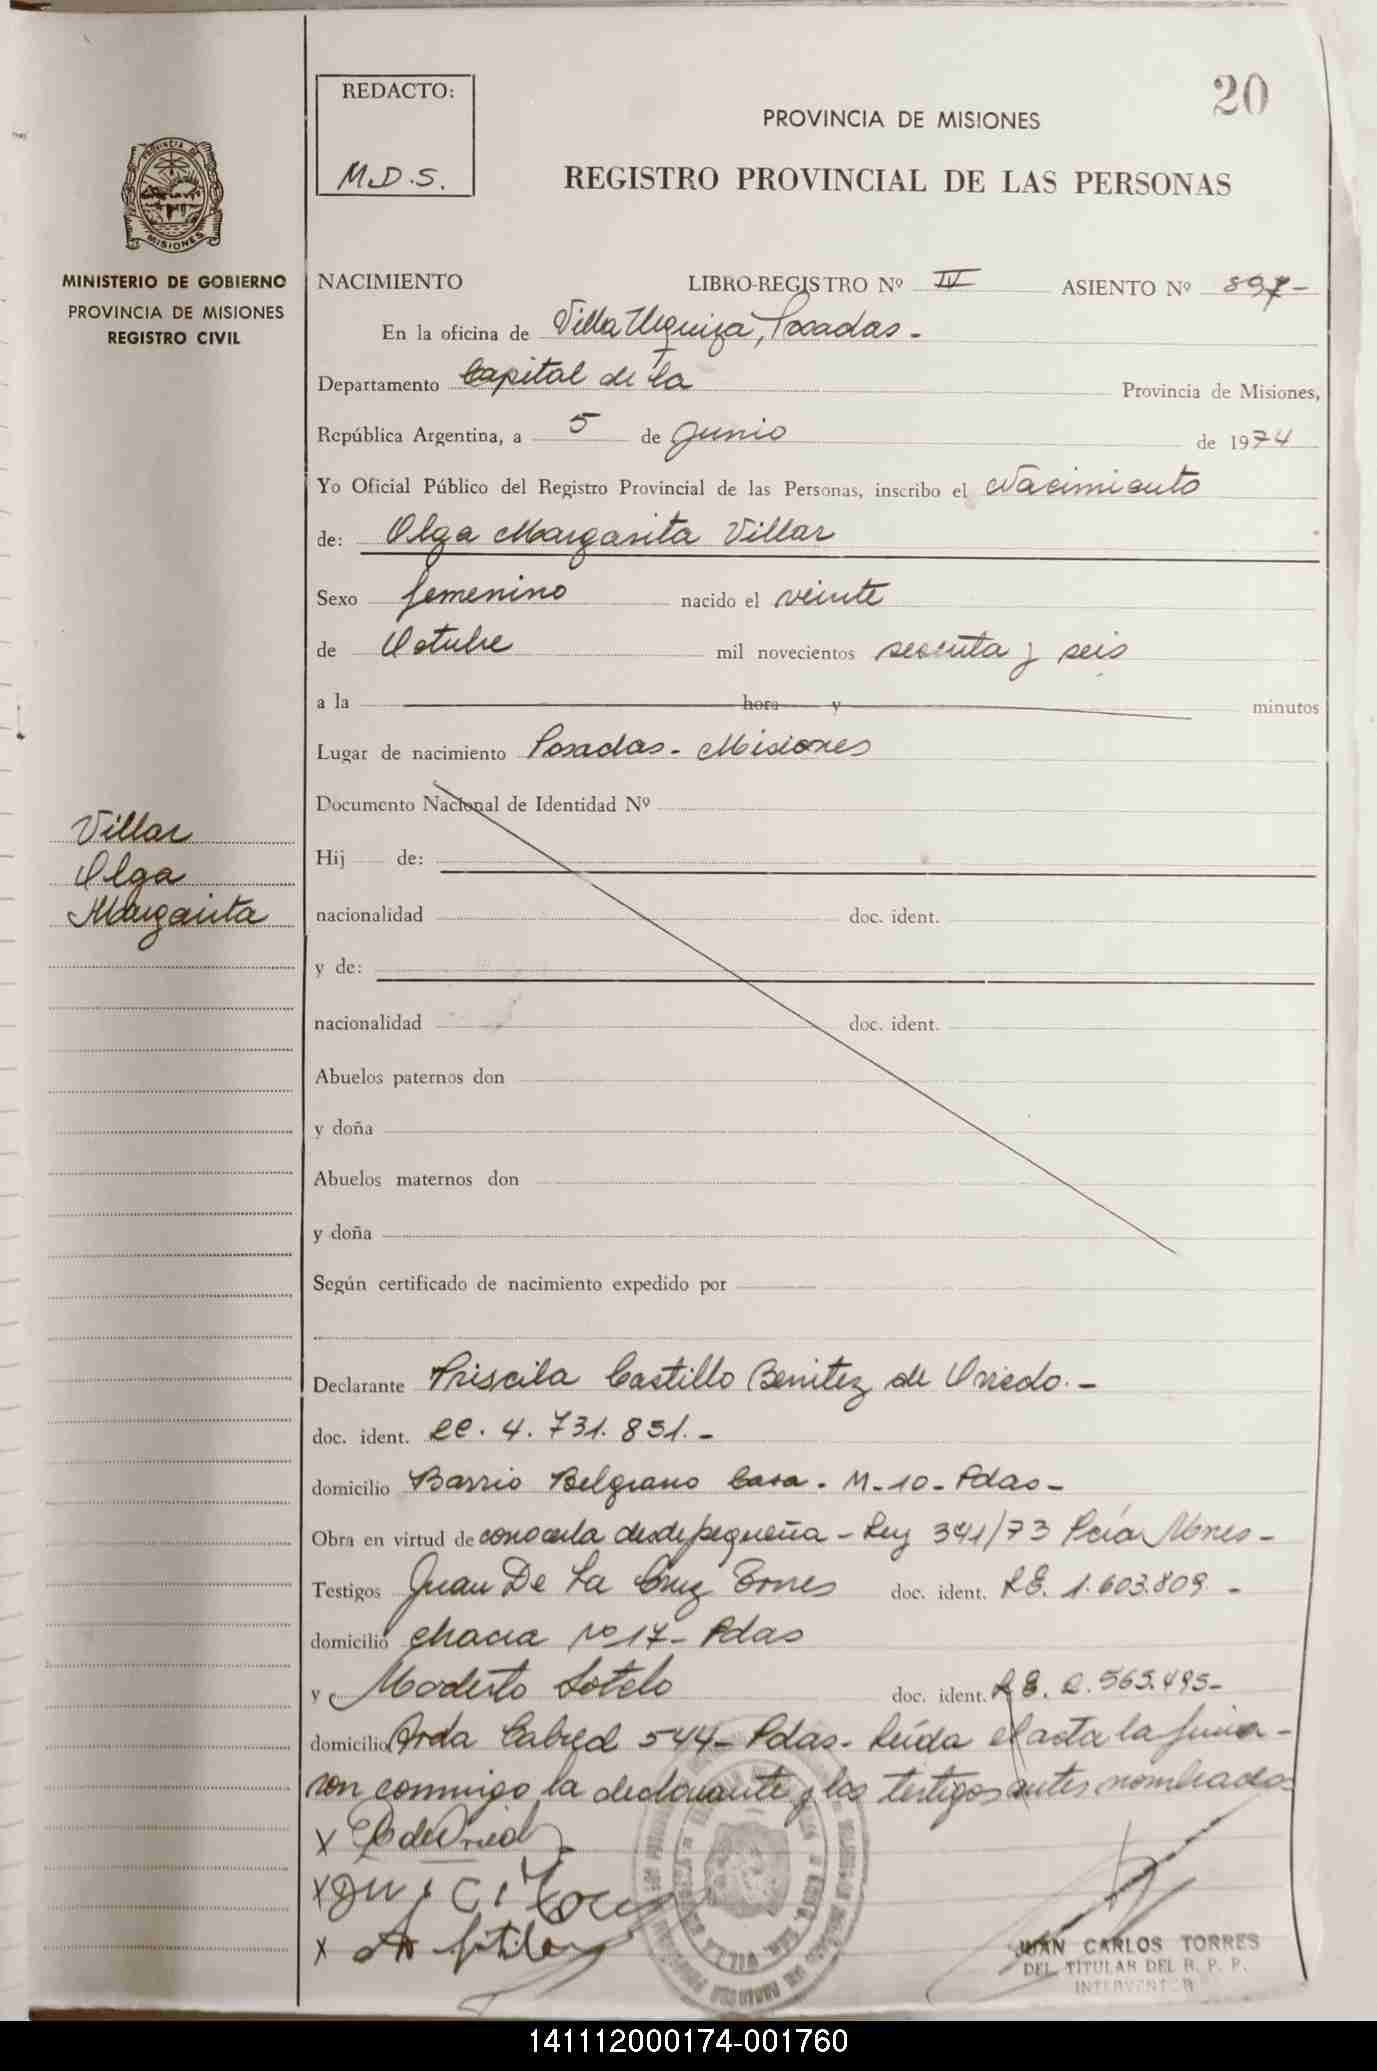 20
REDACTO:
M.D.S.
PROVINCIA DE MISIONES
REGISTRO PROVINCIAL DE LAS PERSONAS
PROVINCIA DE
MISIONES
MINISTERIO DE GOBIERNO
PROVINCIA DE MISIONES
REGISTRO CIVIL
NACIMIENTO LIBRO-REGISTRO Nº IV ASIENTO Nº 897-
En la oficina de Villa Urquiza, Posadas.-
Departamento Capital de la Provincia de Misiones,
República Argentina, a 5 de Junio de 1974
Yo Oficial Público del Registro Provincial de las Personas, inscribo el Nacimiento
de: Olga Margarita Villar
Sexo femenino nacido el veinte
de Octubre mil novecientos sesenta y seis
a la hora y minutos
Lugar de nacimiento Posadas - Misiones
Documento Nacional de Identidad Nº
Villar
Olga
Margarita
Hij de:
nacionalidad doc. ident.
y de:
nacionalidad doc. ident.
Abuelos paternos don
y doña
Abuelos maternos don
y doña
Según certificado de nacimiento expedido por
Declarante Priscila Castillo Benitez de Oviedo.-
doc. ident. CC. 4.731.851.-
domicilio Barrio Belgrano Casa - M-10- Pdas-
Obra en virtud de conocerla desde pequeña - Ley 341/73 Pcia Mnes-
Testigos Juan De La Cruz Torres doc. ident. L.E. 1.603.809 -
domicilio chacra nº 17- Pdas
y Modesto Sotelo doc. ident. L.E. 2.565.495-
domicilio Avda Cabred 544- Pdas- Leída el acta la firma-
ron conmigo la declarante y los testigos antes nombrados
x
x
x
JUAN CARLOS TORRES
DEL. TITULAR DEL R. P. P.
INTERVENTOR
141112000174-001760